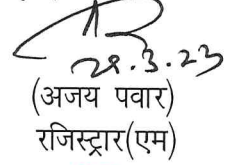 28.3.23
(अजय पवार)
रजिस्ट्रार(एम)